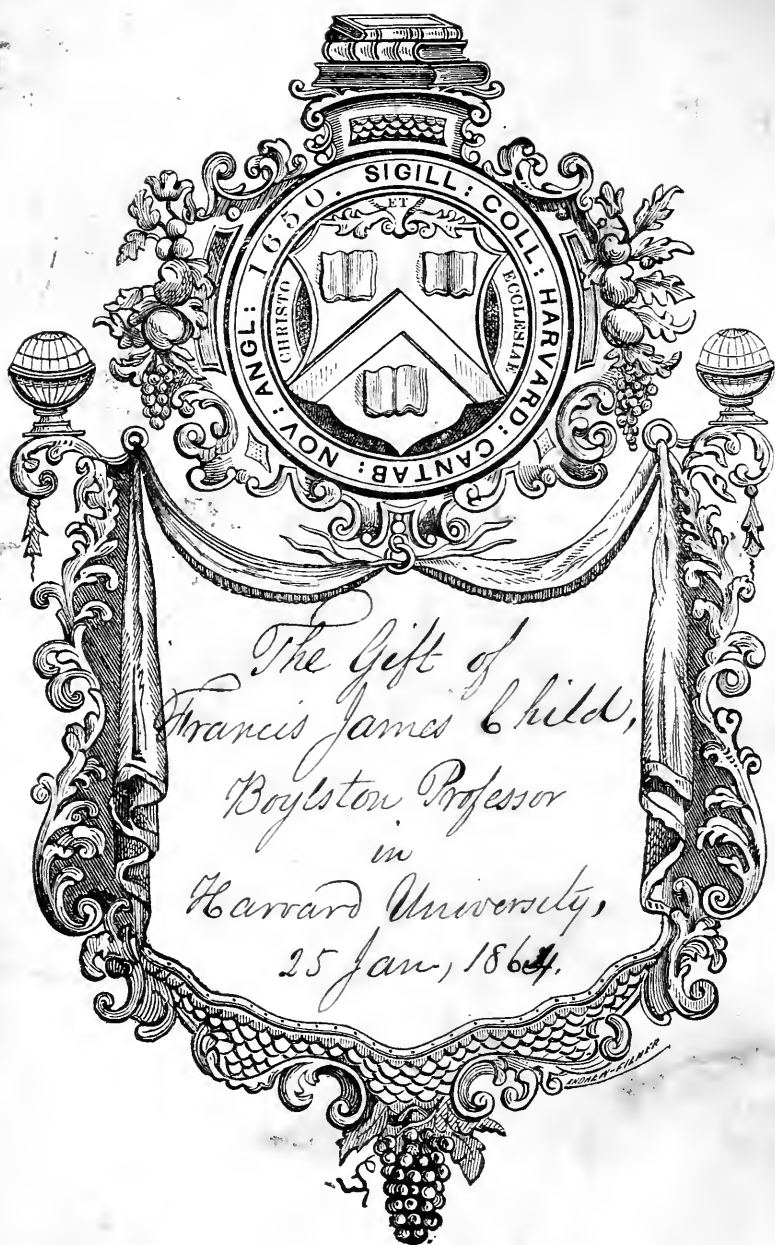 SIGILL: COLL: HARVARD: CANTAB: NOV: ANGL: 1650.
ET
CHRISTO
ECCLESIAE
The Gift of
Francis James Child,
Boylston Professor
in
Harvard University,
25 Jan, 1864.
ANDREW-FILMER